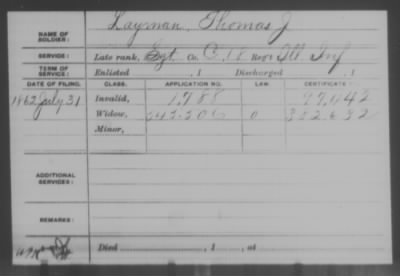 NAME OF SOLDIER: Layman, Thomas J
SERVICE: Late rank, Sgt. Co. C, 18 Reg't Ill. Inf
TERM OF SERVICE: Enlisted , 1 Discharged , 1
DATE OF FILING. CLASS. APPLICATION NO. LAW. CERTIFICATE
1862 July 31 Invalid, 1,988 97,042
Widow, 0 352,632
Minor,
ADDITIONAL SERVICES:
REMARKS:
Died , 1 , at